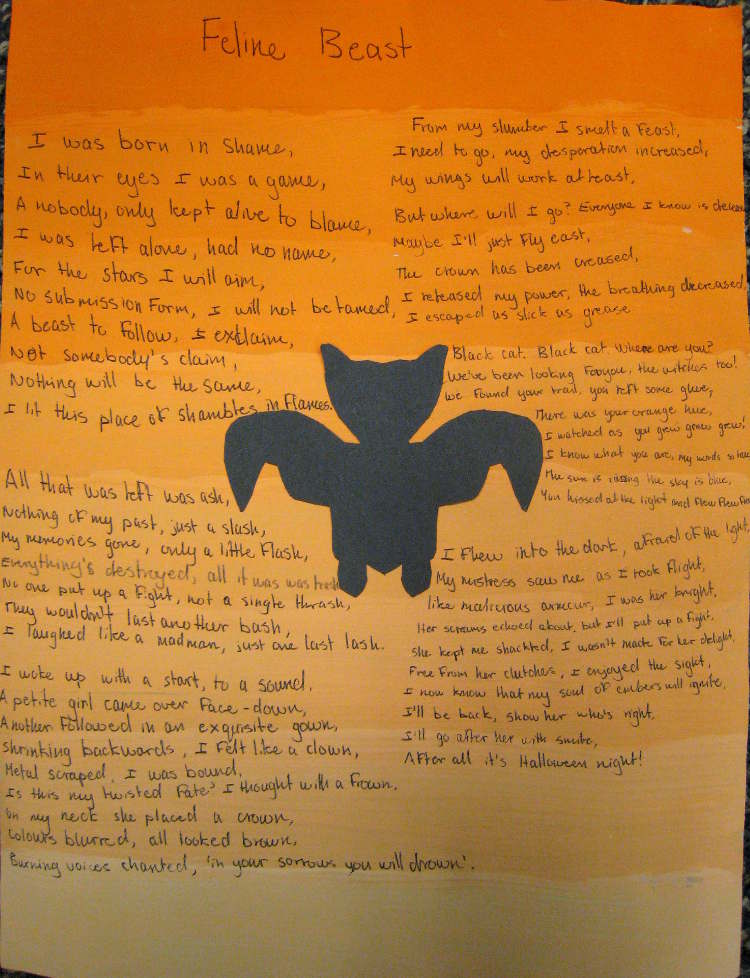 Feline Beast
I was born in shame,
In their eyes I was a game,
A nobody, only kept alive to blame,
I was left alone, had no name,
For the stars I will aim,
No submission form, I will not be tamed,
A beast to follow, I exclaim,
Not somebody's claim,
Nothing will be the same,
I lit this place of shambles in flames.
All that was left was ash,
Nothing of my past, just a slash,
My memories gone, only a little flash,
Everything's destroyed, all it was was trash
No one put up a fight, not a single thrash,
They wouldn't last another bash,
I laughed like a madman, just one last lash.
I woke up with a start, to a sound.
A petite girl came over face-down,
Another followed in an exquisite gown,
shrinking backwards, I felt like a clown,
Metal scraped, I was bound.
Is this my twisted fate? I thought with a frown.
On my neck she placed a crown,
Colours blurred, all looked brown,
Burning voices chanted, 'in your sorrows you will drown'.
From my slumber I smelt a feast,
I need to go, my desperation increased,
My wings will work atleast,
But where will I go? Everyone I know is
Maybe I'll just fly east,
The crown has been creased,
I released my power, the breathing decreased,
I escaped as slick as grease
Black cat. Black cat. Where are you?
We've been looking for you, the witches too!
We found your trail, you left some glue,
There was your orange hue,
I watched as you grew grew grew!
I know what you are, my words so
The sun is rising the sky is blue,
You hissed at the light and flew flew flew
I flew into the dark, afraid of the light,
My mistress saw me as I took flight,
like malicious armour, I was her knight,
Her screams echoed about, but I'll put up a fight.
She kept me shackled, I wasn't made for her delight.
Free from her clutches, I enjoyed the sight,
I now know that my soul of embers will ignite,
I'll be back, show her who's right,
I'll go after her with smite,
After all it's Halloween night!